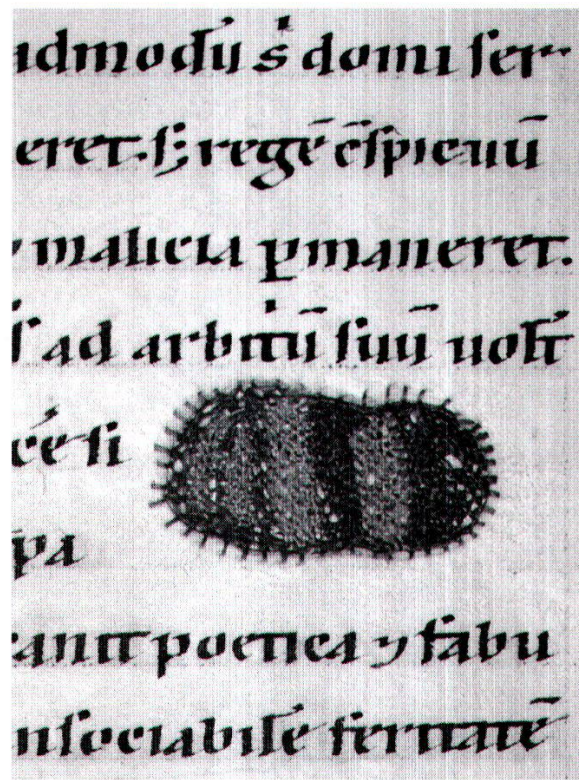 admodū sͥ domi ſer-
eret. Sꝫ regē c̄ſpicuū
malicia ꝑmaneret.
ſ ad arbitͥū ſuū uolt̄
cē ſi
pa
poetica ⁊ fabu
nſociabilē feritatē